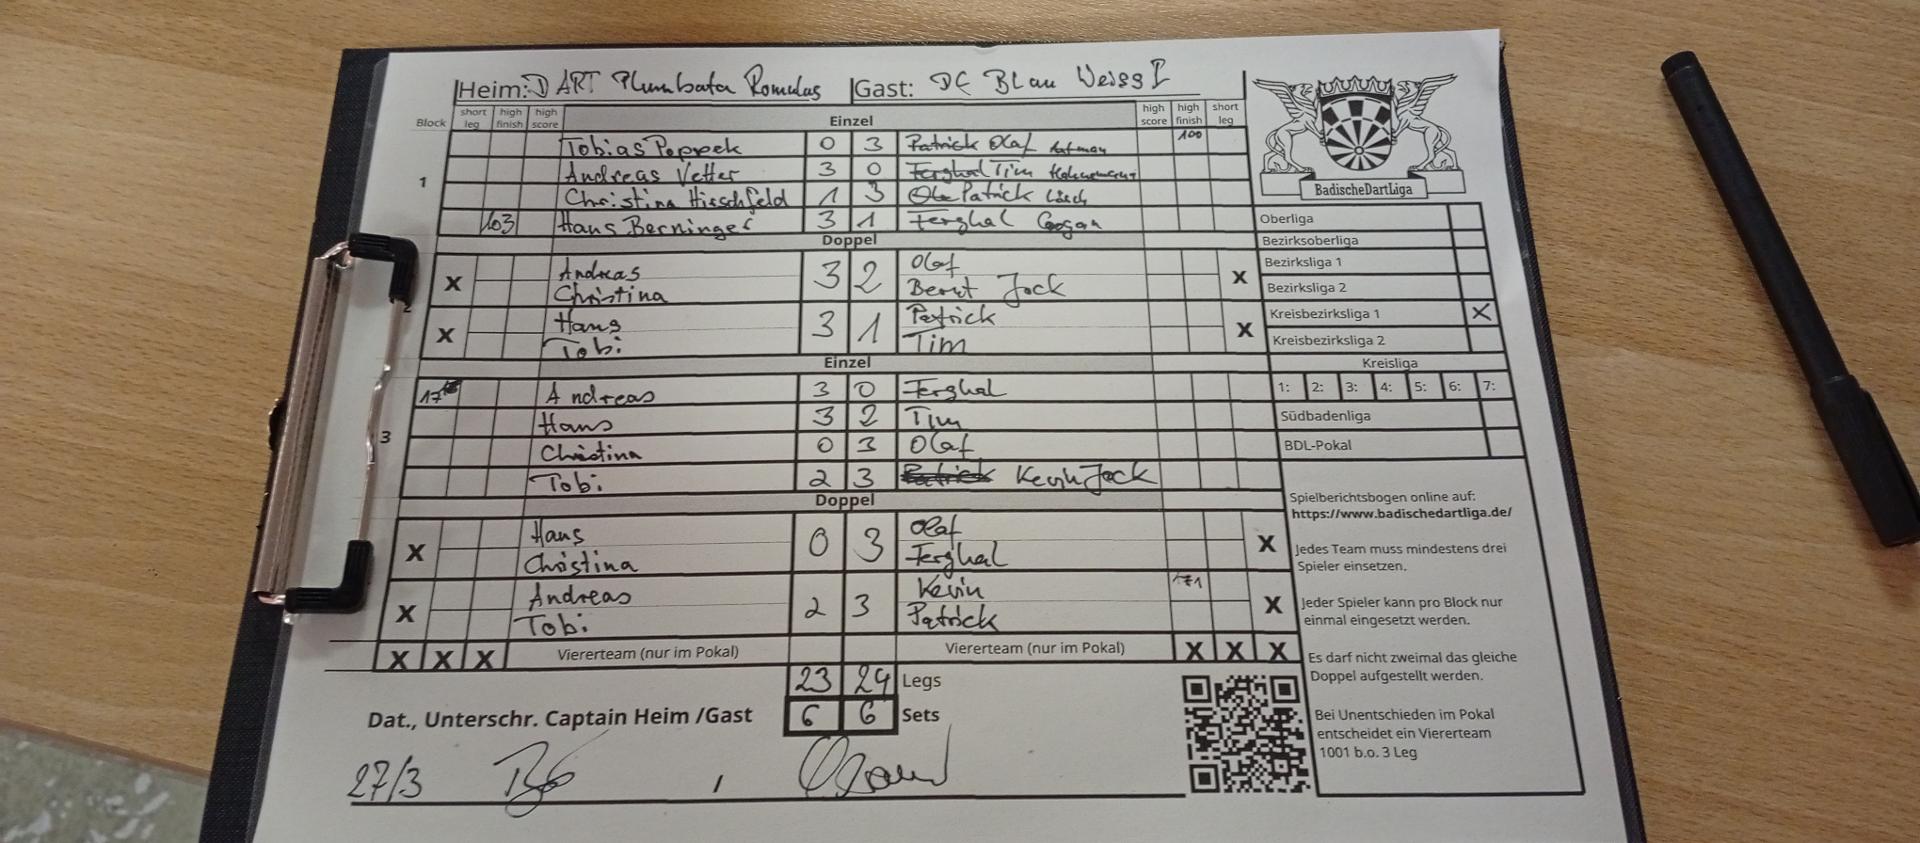 Heim: DART Plumbata Romulas Gast: DC Blau Weiss I
Block short leg high finish high score Einzel high score high finish short leg
1
Tobias Poppek 0 3 Patrick Olaf 100
Andreas Vetter 3 0 Ferghal Tim
Christina Hirschfeld 1 3 Patrick
103 Hans Berninger 3 1 Ferghal
Doppel
2
X Andreas 3 2 Olaf X
Christina Bernt Jock
X Hans 3 1 Patrick X
Tobi Tim
Einzel
3
Andreas 3 0 Ferghal
Hans 3 2 Tim
Christina 0 3 Olaf
Tobi 2 3 Patrick Kevin Jock
Doppel
X Hans 0 3 Olaf X
Christina Ferghal
X Andreas 2 3 Kevin 171 X
Tobi Patrick
X X X Viererteam (nur im Pokal) Viererteam (nur im Pokal) X X X
23 24 Legs
Dat., Unterschr. Captain Heim /Gast 6 6 Sets
27/3
BadischeDartLiga
Oberliga
Bezirksoberliga
Bezirksliga 1
Bezirksliga 2
Kreisbezirksliga 1 X
Kreisbezirksliga 2
Kreisliga
1: 2: 3: 4: 5: 6: 7:
Südbadenliga
BDL-Pokal
Spielberichtsbogen online auf:
https://www.badischedartliga.de/
Jedes Team muss mindestens drei
Spieler einsetzen.
Jeder Spieler kann pro Block nur
einmal eingesetzt werden.
Es darf nicht zweimal das gleiche
Doppel aufgestellt werden.
Bei Unentschieden im Pokal
entscheidet ein Viererteam
1001 b.o. 3 Leg